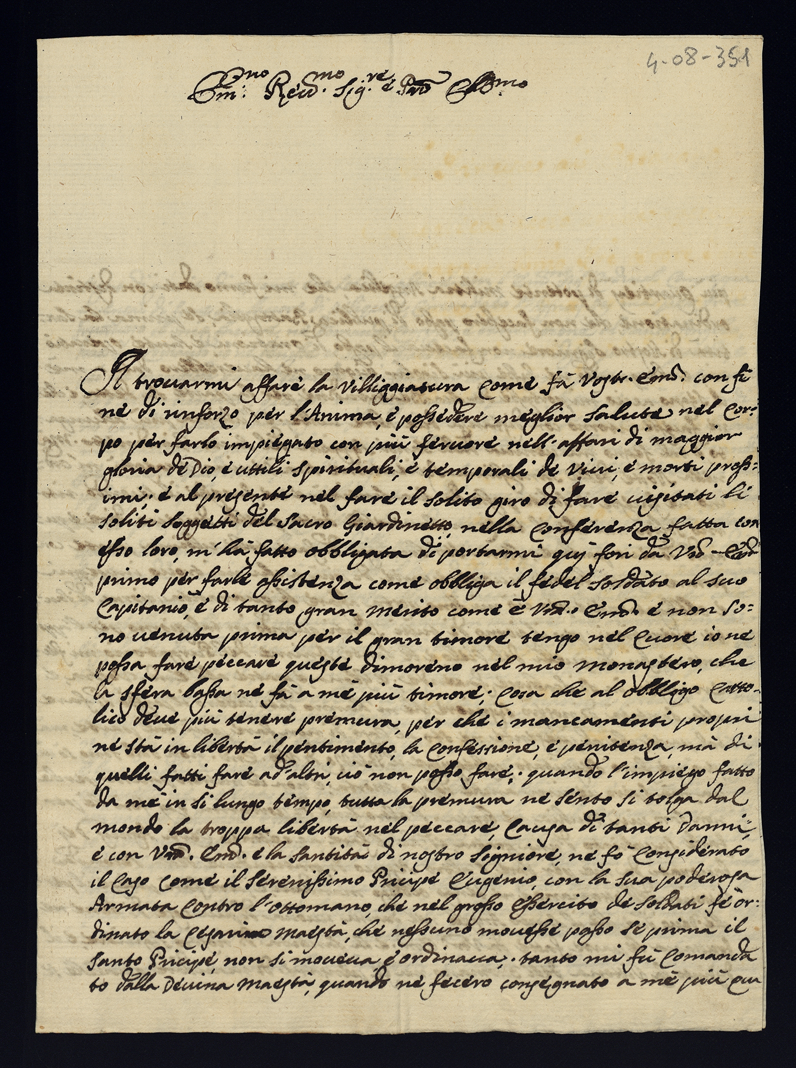 4-08-351
Em:mo Reu.mo Sig.re e Prōn Col.mo
Il trouarmi affare la Villiggiatura come fà Vostr. Emā. con fi
ne di rinforzo per l'Anima, e possedere meglior salute nel Cor=
po per farlo impiegato con più feruore nell'affari di maggior
gloria de Dio, e uttili spirituali, e temporali de Viui, e morti pross=
imi; e al presente nel fare il solito giro di fare uisitati li
soliti soggetti del Sacro Giardinetto, nella Conferenza fatta con
esso loro, m'hà fatto obbligata di portarmi quì fori da Vrā Emā
primo per farle assistenza come obbliga il fedel soldato al suo
Capitanio, e di tanto gran merito come è Vrā. Emā. e non so=
no uenuta prima per il gran timore tengo nel Cuore io ne
possa fare peccare queste dimoreno nel mio monastero, che
la sfera bassa ne fà a mè più timore; Cosa che al obbligo Catto-
lico deue più tenere premura, per che i mancamenti proprii
ne stà in libertà il pentimento, la Confessione, e penitenza, mà di
quelli fatti fare ad'altri, ciò non posso fare; quando l'impiego fatto
da me in sì lungo tempo, tutta la premura ne sento si tolga dal
mondo la troppa libertà nel peccare, Causa di tanti Danni,
e con Vrā. Emā. e la santità di nostro Signiore, ne fò Considerato
il Caso come il Serenissimo Pricipe Eugenio, con la sua poderosa
Armata Contro l'Ottomano, che nel grosso Essercito de soldati fè or=
dinato la Cesarina Maestà, che nessuno mouesse passo se prima il
Santo Pricipe, non si moueua e ordinaua; tanto mi fù Comanda
to dalla Deuina Maestà, quando ne fecero Consegnato a mè più qua